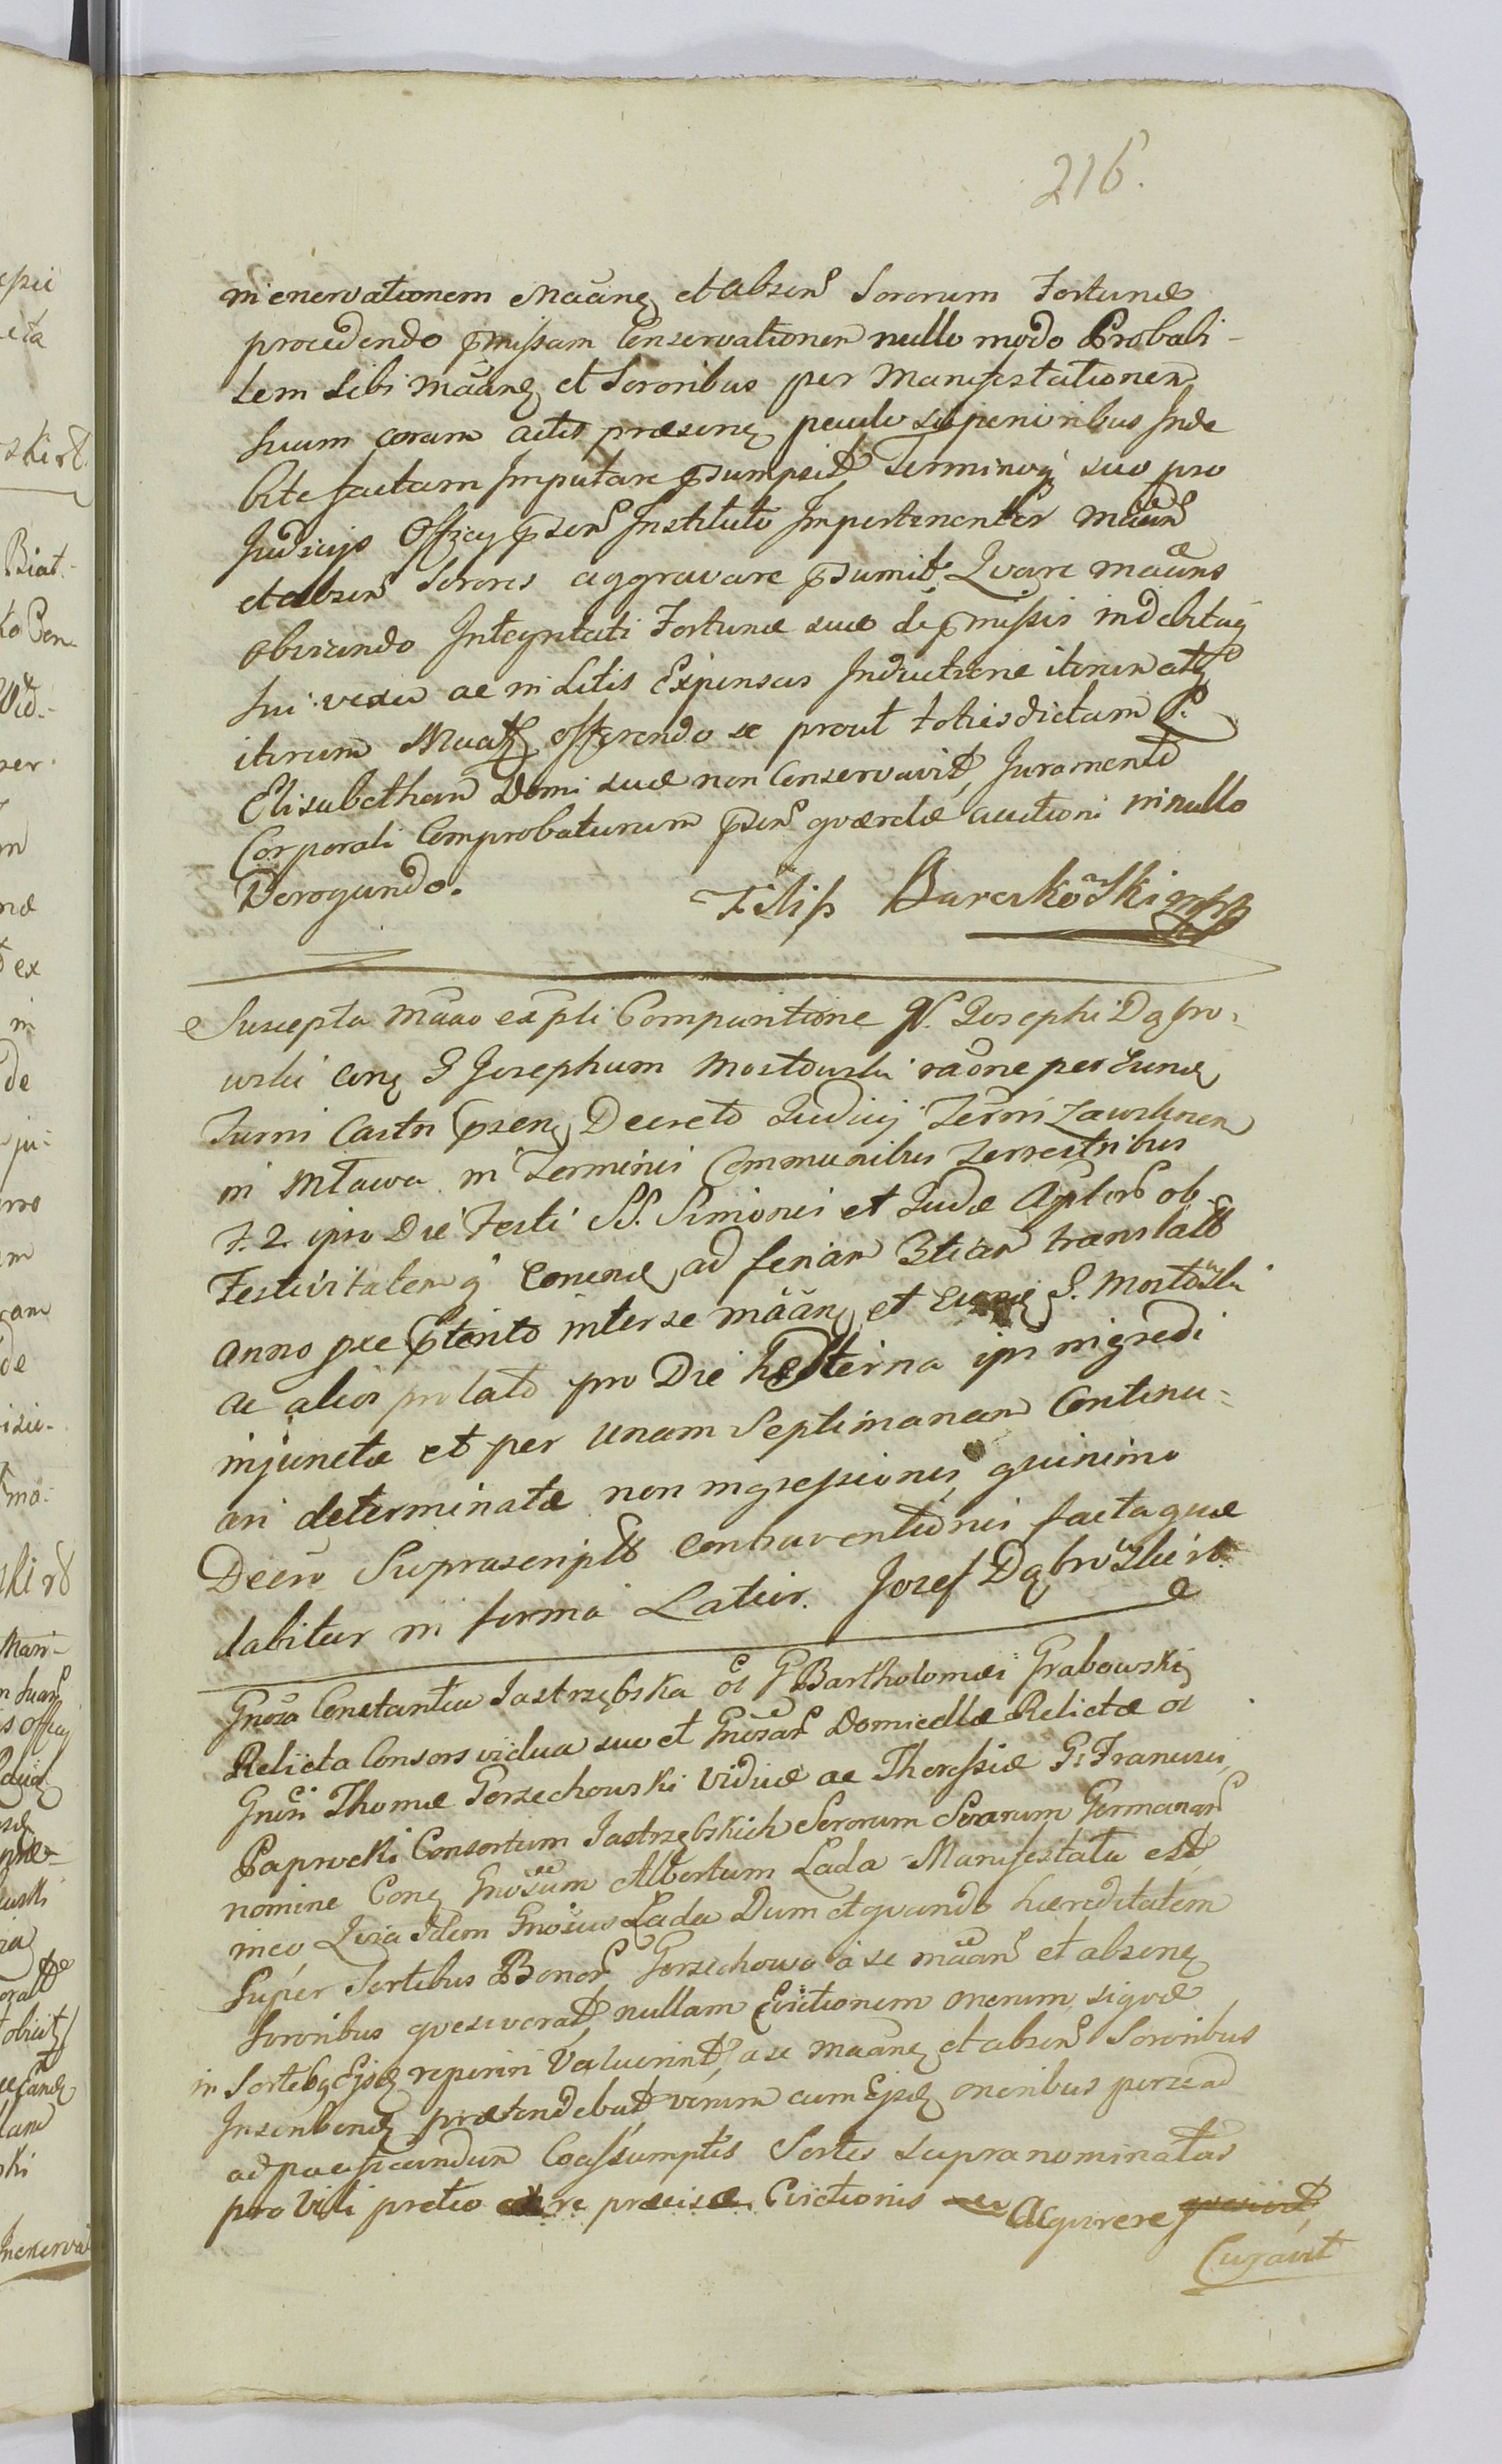 216.
in enervationem Maãnẹ et absen̄ Sororum Fortunæ
procedendo p̃missam Conservationem nullo modo Probabi-
lem sibi Maãnẹ et Sororibus per Manifestationem
suam coram actis præsenẹ paulo superioribus Inde
bite factam Imputare p̃sumpsit, Terminoqꝫ suo pro
Judicijs Officij p̃sen̄ Instituto Impertinenter Maãn̄
et absen̄ Sorores aggravare p̃sumit. Qvare maãns
obviando Integritati Fortunæ suæ de p̃missis indebitaqꝫ
sui vexa ac in Litis Expensas Inductione iterum atqꝫ
iterum offerendo se prout toties dictam G.
Elisabetham Domi suæ non Conservavit, Juramento
Corporali Comprobaturum p̃sen̄ qværelæ auctioni in nullo
Derogando.
Filip Barcikowski mpp
Suscepta Maão expli Comparitione G. Josephi Dąbro-
wski conẹ G Josephum Mostowski raõne per eund
Turni Castri p̃senẹ Decreto Judicij Terrri Zawskrzen
in Mława in Terminis Communibus Terrestribus
F. 2. ipso Die Festi SS. Simonis et Judæ Aplor̄ ob
Festivitatem ad feriam 3tiam translatis
anno præ p̃terito inter se maãnẹ et G. Mostowski
ac alios prolato pro Die hesterna ipi ingredi
injunctæ et per unam Septimanam Continu-
ari determinatæ non ingressionis, quinimo
Decro Suprascripto Contraventionis factaquæ
dabitur in forma Latior. Jozef Dąbrowski
Gnosa Constantia Jastrzębska ol G Bartholomæi Grabowski
Relicta Consors vidua suo et Gnosar̄ Domicellæ Relictæ ol
Gnosi Thomæ Gorzechowski Viduæ ac Theressiæ G. Francisci
Paprocki Consortum Jastrzębskich Sororum Suarum Germanar̄
nomine Conẹ Gnosum Albertum Lada Manifestata est
in eo, Quia Idem Gnosus Lada Dum et quando hæreditatem
Super Sortibus Bonor̄ Gorzechowo a se maãn̄ et absenẹ
Sororibus quesiverat, nullam Evictionem onerum, siquæ
in Sortebꝫ Ejsdẹ reperiri Valuerint, a se maãnẹ et absen̄ Sororibus
Inscribendẹ prætendebat, verum cum Ejsdẹ oneribus per se ad
ad pacificandum Coassumptis Sortes supranominatas
pro Vili pretio præcisæ Evictionis Acqvirere qvæsivit,
Curavit